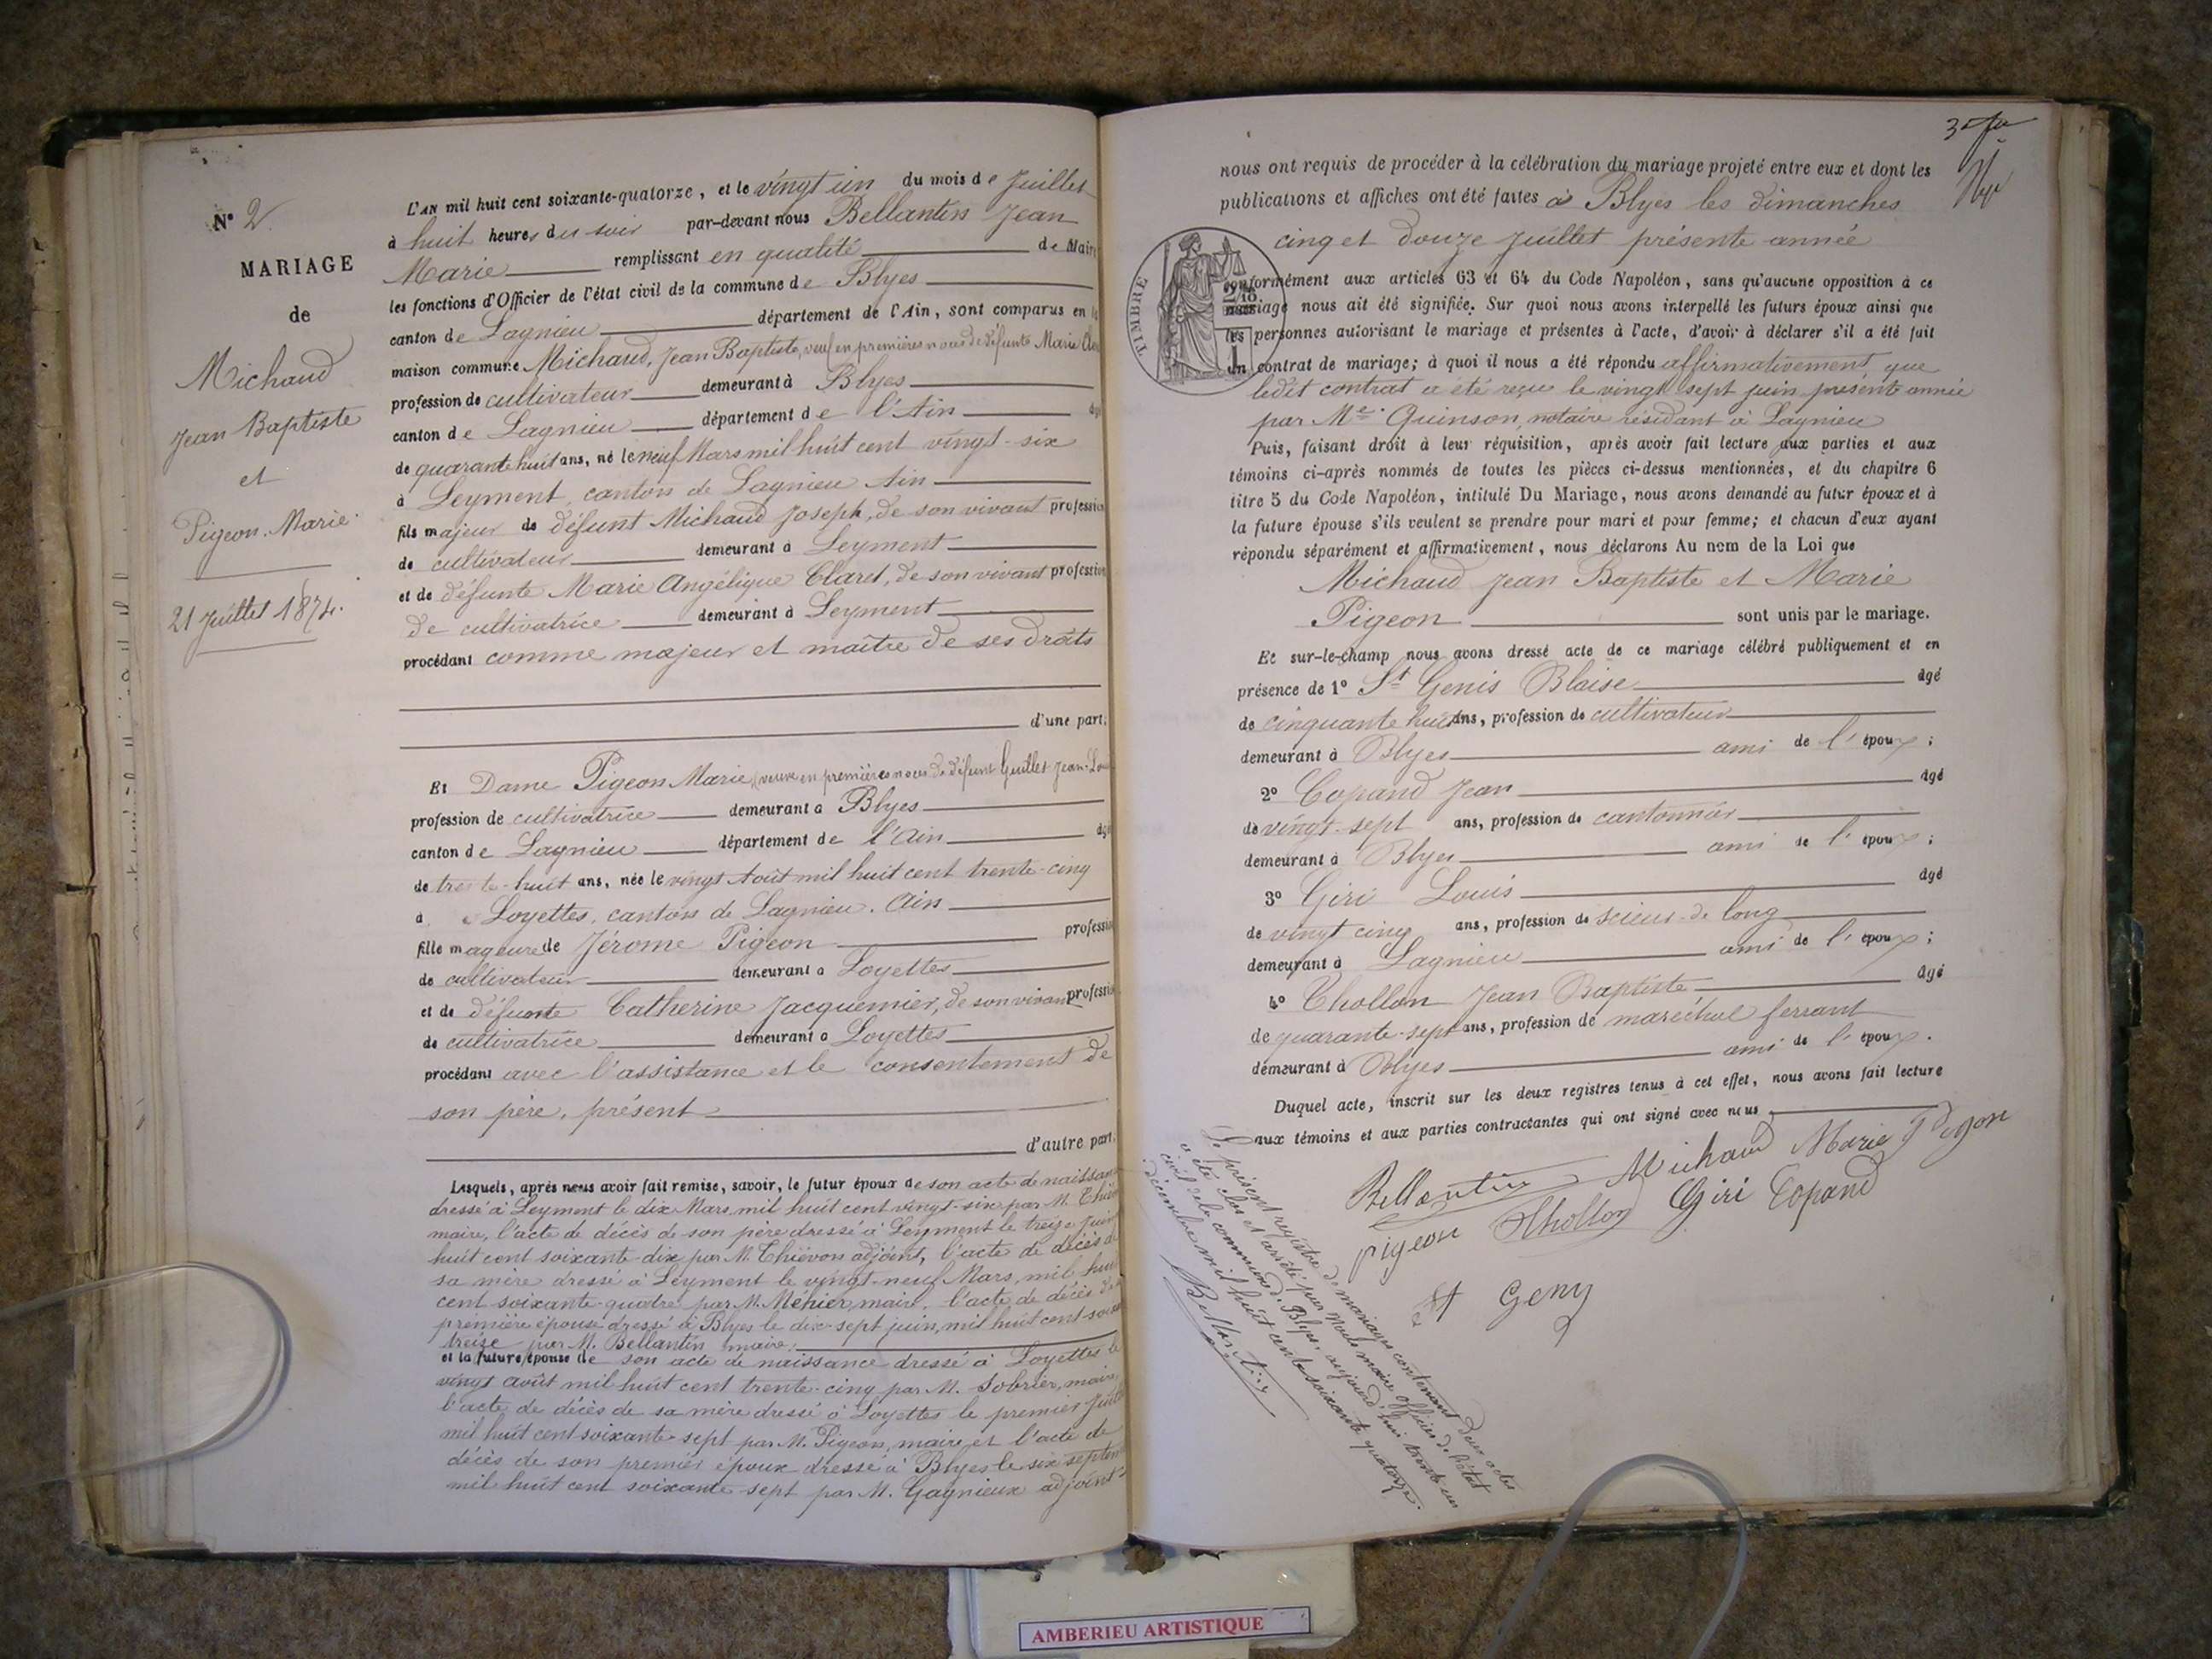 N° 2
MARIAGE
de
Michaud
Jean Baptiste
et
Pigeon Marie
21 Juillet 1874.
L'AN mil huit cent soixante-quatorze, et le vingt un du mois de Juillet
à huit heures du soir par-devant nous Bellantin Jean
Marie remplissant en qualité de Maire
les fonctions d'Officier de l'état civil de la commune de Blyes
canton de Lagnieu département de l'Ain, sont comparus en la
maison commune Michaud, Jean Baptiste, veuf en premières noces de défunte Marie
profession de cultivateur demeurant à Blyes
canton de Lagnieu département de l'Ain âgé
de quarante huit ans, né le neuf Mars mil huit cent vingt-six
à Leyment, canton de Lagnieu Ain
fils majeur de défunt Michaud Joseph, de son vivant profession
de cultivateur demeurant à Leyment
et de défunte Marie Angélique Claret, de son vivant profession
de cultivatrice demeurant à Leyment
procédant comme majeur et maître de ses droits
d'une part;
Et Dame Pigeon Marie, veuve en premières noces de défunt Guillet Jean-Louis
profession de cultivatrice demeurant à Blyes
canton de Lagnieu département de l'Ain âgé
de trente-huit ans, née le vingt Août mil huit cent trente-cinq
à Loyettes, canton de Lagnieu. Ain
fille mageure de Jérome Pigeon profession
de cultivateur demeurant à Loyettes
et de défunte Catherine Jacquemier, de son vivant profession
de cultivatrice demeurant à Loyettes
procédant avec l'assistance et le consentement de
son père, présent
d'autre part.
Lesquels, après nous avoir fait remise, savoir, le futur époux de son acte de naissance
dressé à Leyment le dix Mars mil huit cent vingt-six par M.
maire, l'acte de décès de son père dressé à Leyment le treize Juin
huit cent soixante-dix par M. Thiévon adjoint, l'acte de décès de
sa mère dressé à Leyment le vingt-neuf Mars, mil huit
cent soixante-quatre par M. Méhier, maire, l'acte de décès de
première épouse dressé à Blyes le dix-sept juin, mil huit cent soixante
treize par M. Bellantin maire.
et la future épouse de son acte de naissance dressé à Loyettes le
vingt août mil huit cent trente-cinq par M. Sobrier, maire,
l'acte de décès de sa mère dressé à Loyettes le premier Juillet
mil huit cent soixante-sept par M. Pigeon, maire, et l'acte de
décès de son premier époux dressé à Blyes le six septembre
mil huit cent soixante-sept par M. Gagnieux adjoint
nous ont requis de procéder à la célébration du mariage projeté entre eux et dont les
publications et affiches ont été faites à Blyes les dimanches
cinq et douze Juillet présente année
TIMBRE
2/10
conformément aux articles 63 et 64 du Code Napoléon, sans qu'aucune opposition à ce
mariage nous ait été signifiée. Sur quoi nous avons interpellé les futurs époux ainsi que
les personnes autorisant le mariage et présentes à l'acte, d'avoir à déclarer s'il a été fait
un contrat de mariage; à quoi il nous a été répondu affirmativement, que
ledit contrat a été reçu le vingt sept juin présente année
par Me Quinson, notaire résidant à Lagnieu
Puis, faisant droit à leur réquisition, après avoir fait lecture aux parties et aux
témoins ci-après nommés de toutes les pièces ci-dessus mentionnées, et du chapitre 6
titre 5 du Code Napoléon, intitulé Du Mariage, nous avons demandé au futur époux et à
la future épouse s'ils veulent se prendre pour mari et pour femme; et chacun d'eux ayant
répondu séparément et affirmativement, nous déclarons Au nom de la Loi que
Michaud Jean Baptiste et Marie
Pigeon sont unis par le mariage.
Et sur-le-champ nous avons dressé acte de ce mariage célébré publiquement et en
présence de 1° St Genis Blaise âgé
de cinquante huit ans, profession de cultivateur
demeurant à Blyes ami de l'époux;
2° Copand Jean âgé
de vingt-sept ans, profession de cantonnier
demeurant à Blyes ami de l'époux;
3° Giri Louis âgé
de vingt cinq ans, profession de scieur de long
demeurant à Lagnieu ami de l'époux;
4° Thollon Jean Baptiste âgé
de quarante-sept ans, profession de maréchal ferrant
demeurant à Blyes ami de l'époux.
Duquel acte, inscrit sur les deux registres tenus à cet effet, nous avons fait lecture
aux témoins et aux parties contractantes qui ont signé avec nous
Bellantin Michaud Marie Pigeon
pigeon Thollon Giri Copand
St Geny
Le présent registre de mariages contenant deux actes
a été clos et arrêté par nous maire officier de l'état
civil de la commune de Blyes, aujourd'hui trente un
décembre mil huit cent soixante quatorze.
Bellantin
AMBERIEU ARTISTIQUE